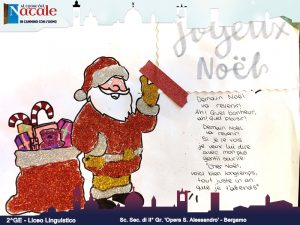 al cuore del
Natale
IN CAMMINO CON L'UOMO
Joyeux
Noël
Demain Noël
va revenir
Ah! Quel bonheur,
ah! quel plaisir!
Demain Noël
va revenir
Si je le vois
je veux lui dire
avec mon plus
gentil sourire
"Cher Noël,
voici bien longtemps,
tout juste un an
que je t'attends"
2^GE - Liceo Linguistico
Sc. Sec. di II° Gr. 'Opera S. Alessandro' - Bergamo